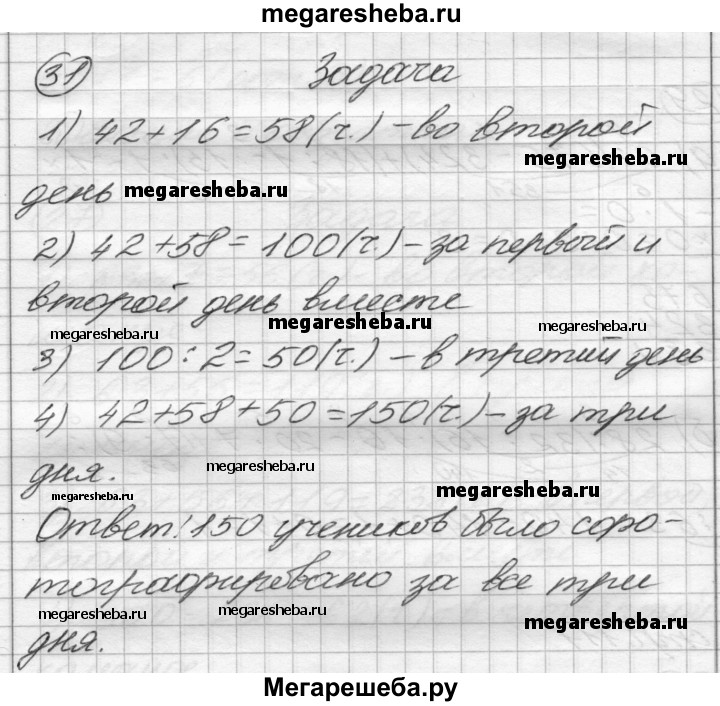 megaresheba.ru
31 Задача
1) 42+16=58(ч.) – во второй
megaresheba.ru
день megaresheba.ru
2) 42+58=100(ч.) – за первый и
второй день вместе
megaresheba.ru megaresheba.ru megaresheba.ru
3) 100:2=50(ч.) – в третий день
4) 42+58+50=150(ч.) – за три
дня. megaresheba.ru
megaresheba.ru megaresheba.ru
Ответ: 150 учеников было сфо-
тографировано за все три
megaresheba.ru megaresheba.ru megaresheba.ru
дня.
Мегарешеба.ру